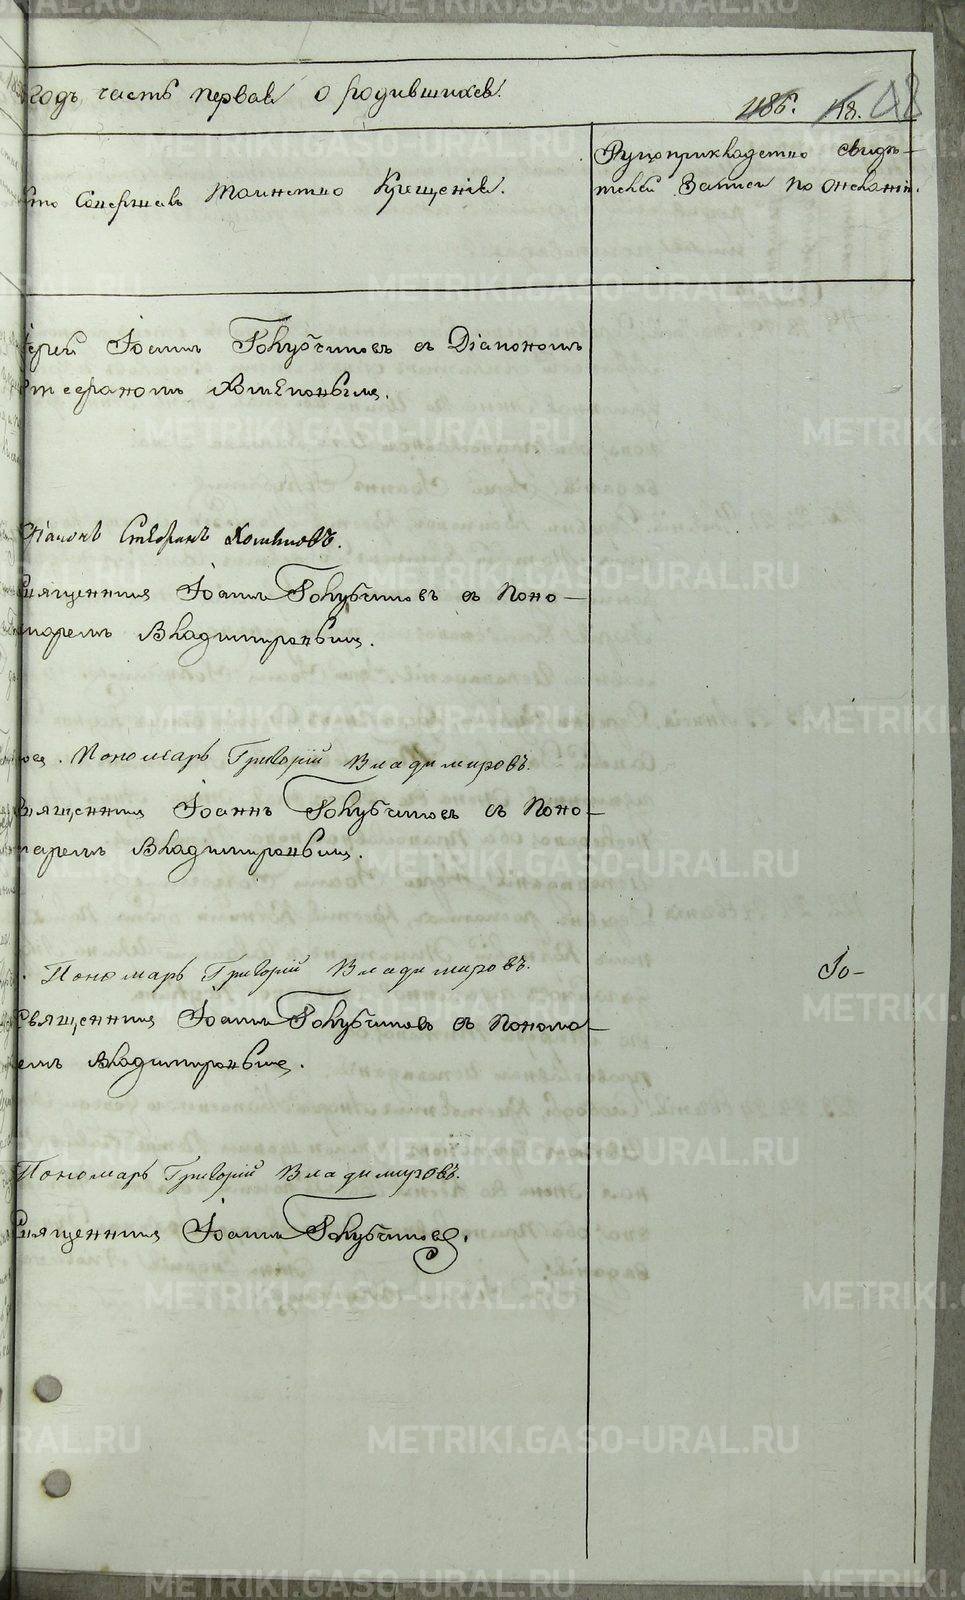 годъ, часть первая о родившихся.
486. 48. 48
Кто Совершалъ Таинство Крещенія.
Рукоприкладство свидѣ-
телей Записи по желанію.
Іерей Іоаннъ Голубчиковъ съ Діакономъ
Стефаномъ Хотѣновымъ.
Діаконъ Стефанъ Хотѣновъ.
Священникъ Іоаннъ Голубчиковъ съ Поно-
маремъ Владимировымъ.
Пономарь Григорій Владимировъ.
Священникъ Іоаннъ Голубчиковъ съ Поно-
маремъ Владимировымъ.
Пономарь Григорій Владимировъ.
Іо-
Священникъ Іоаннъ Голубчиковъ съ Понома-
ремъ Владимировымъ.
Пономарь Григорій Владимировъ.
Священникъ Іоаннъ Голубчиковъ.
METRIKI.GASO-URAL.RU